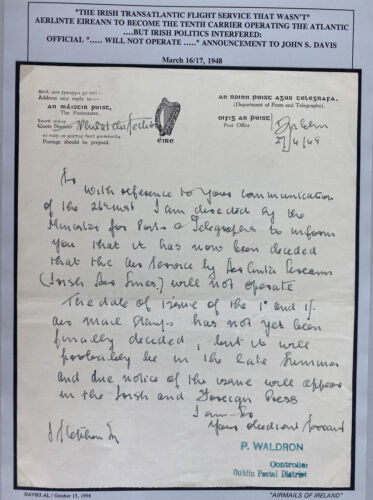 "THE IRISH TRANSATLANTIC FLIGHT SERVICE THAT WASN'T"
AERLINTE EIREANN TO BECOME THE TENTH CARRIER OPERATING THE ATLANTIC
....BUT IRISH POLITICS INTERFERED:
OFFICIAL "..... WILL NOT OPERATE ....." ANNOUNCEMENT TO JOHN S. DAVIS
March 16/17, 1948
Address any reply to:—
an máistir puist,
The Postmaster.
Quote Number
Postage should be prepaid.
éire
an roinn puist agus telegrafa.
(Department of Posts and Telegraphs).
oifig an puist
Post Office
Dublin
27/4/49
Sir
With reference to your communication
of the 26th inst I am directed by the
Minister for Posts & Telegraphs to inform
you that it has now been decided
that the air service by
(Irish Air Lines) will not operate
The date of issue of the 1d and 1/-
air mail stamps has not yet been
finally decided, but it will
probably be in the late Summer
and due notice of the issue will appear
in the Irish and Foreign Press
I am Sir
Your obedient servant
P. WALDRON
Controller
Dublin Postal District
DAVIS1.AL / October 15, 1994
"AIRMAILS OF IRELAND"